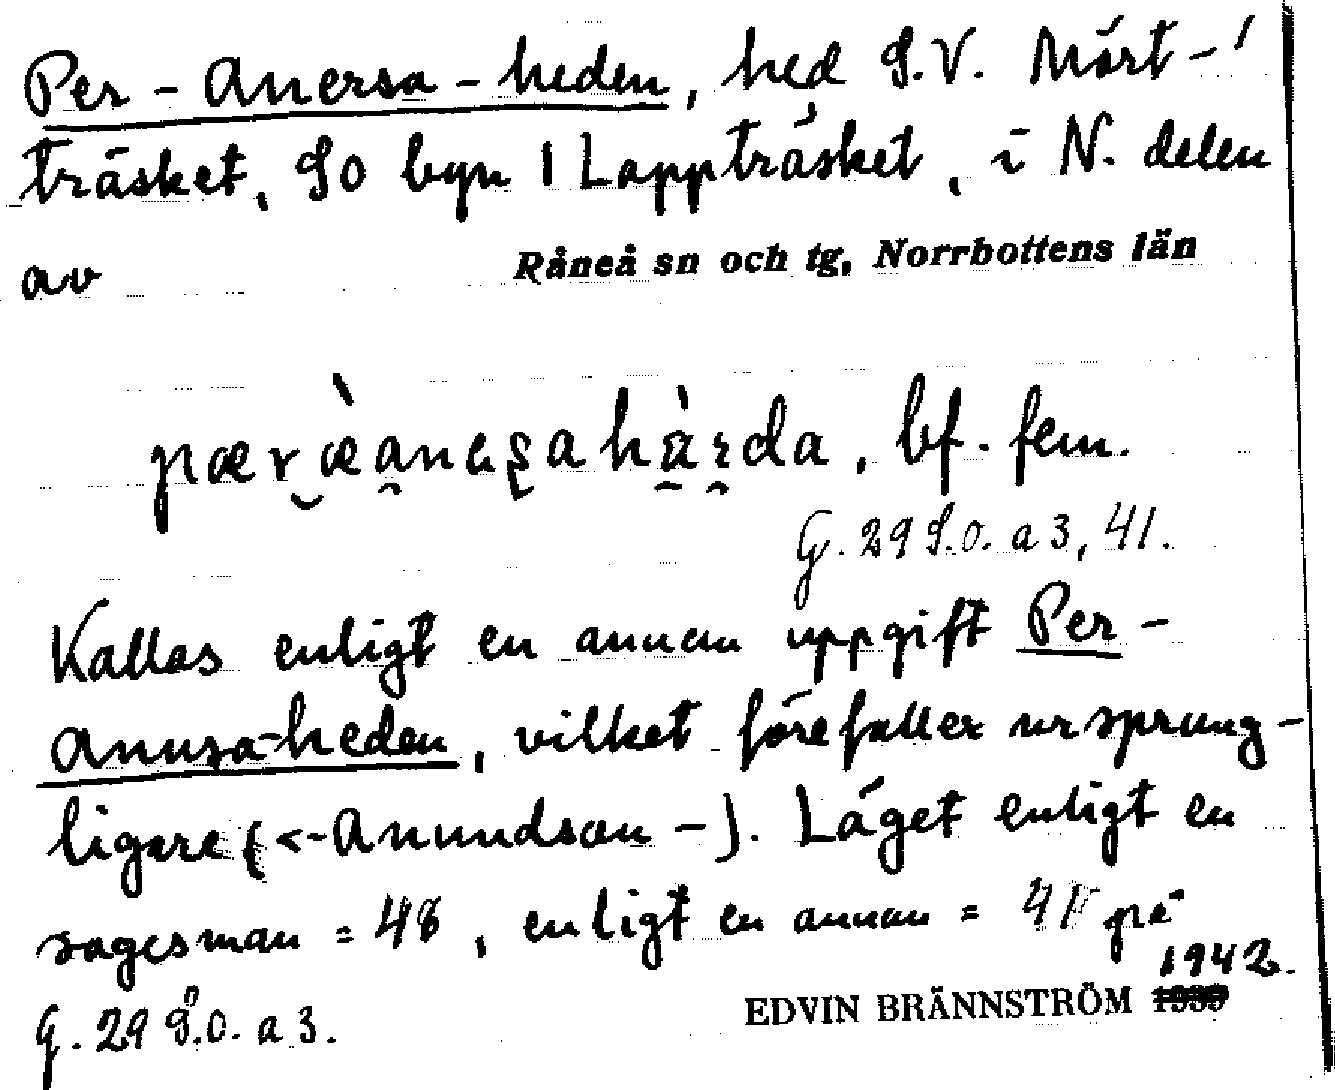 Per-Anersa-heden, hed S.V. Mört-
träsket, SO byn i Lappträsket, i N. delen
av Råneå sn och tg, Norrbottens län
bf. fem.
G. 29 S.O. a 3, 41.
Kallas enligt en annan uppgift Per-
Anusa-heden, vilket förefaller ursprung-
ligare (<-Anundsan-). Läget enligt en
sagesman = 48, enligt en annan = 41 på
G. 29 S.O. a 3.
EDVIN BRÄNNSTRÖM 1942.